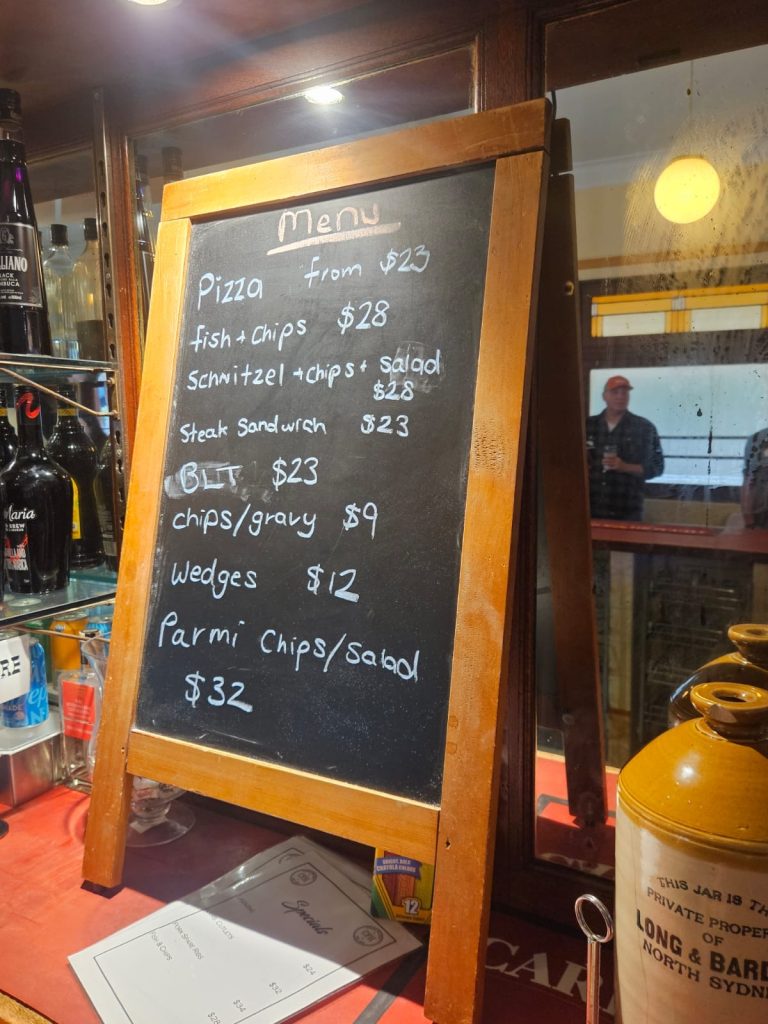 Menu
Pizza from $23
fish + chips $28
Schnitzel + chips + salad
$28
Steak Sandwich $23
BLT $23
chips/gravy $9
Wedges $12
Parmi Chips/Salad
$32
LIANO
Maria
BREW
Specials
$24
$32
PORK SPARE RIBS $34
FISH & CHIPS $28
CRAYOLA
12
CAR
THIS JAR IS TH
PRIVATE PROPER
OF
LONG & BARD
NORTH SYDNE